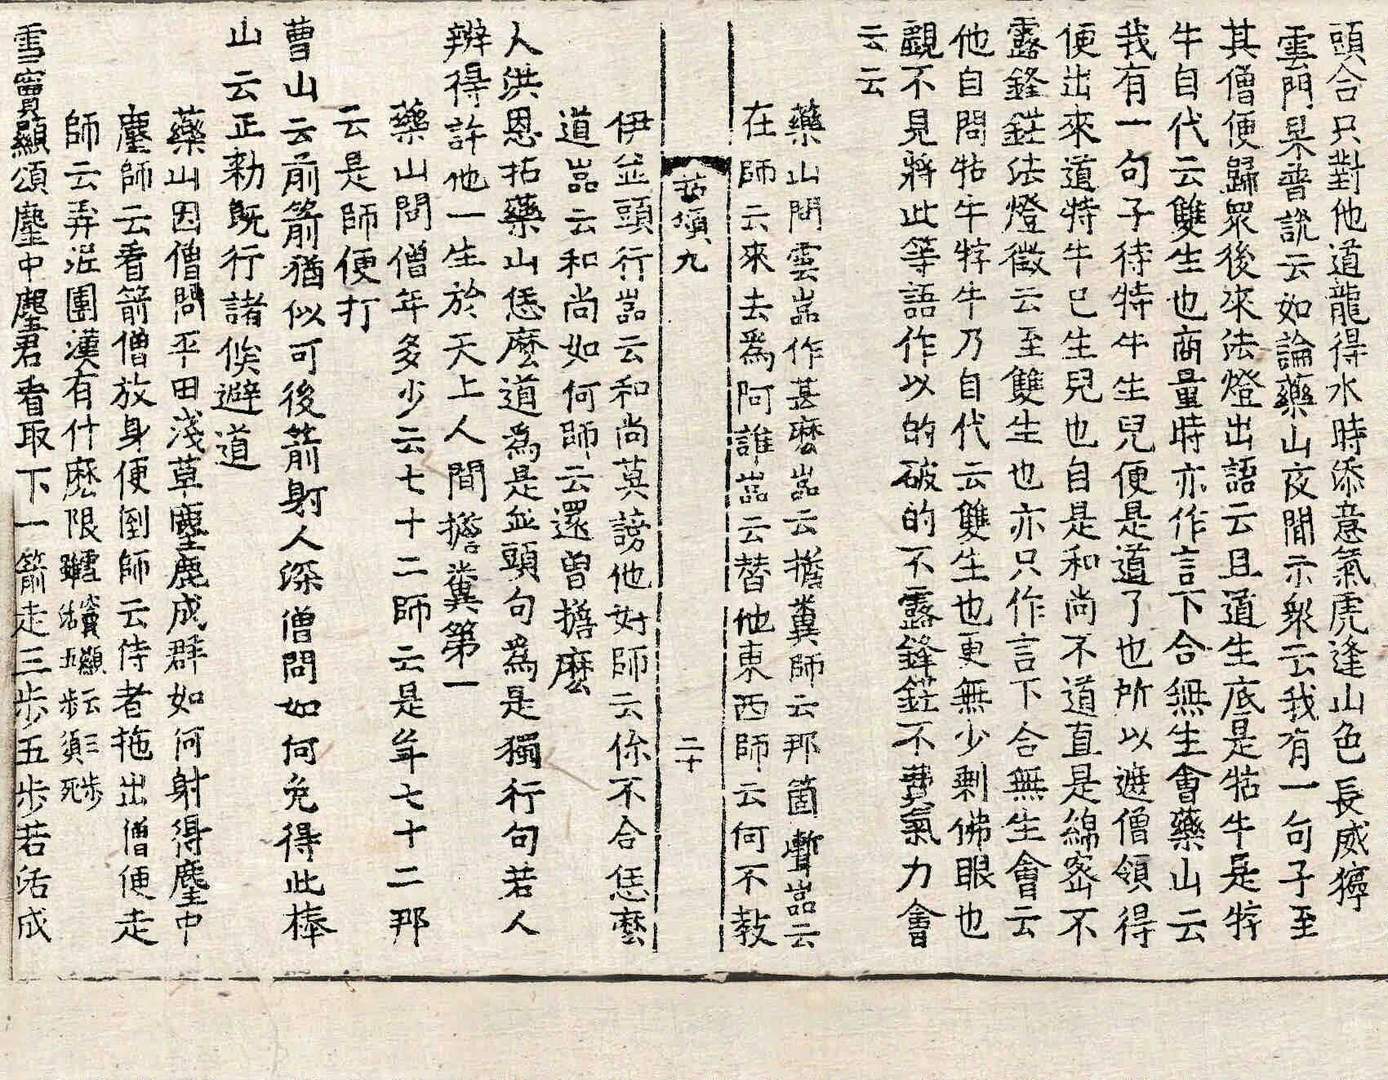 頭合只對他道龍得水時添意氣虎逢山色長威獰
雲門杲普說云如論藥山夜間示衆云我有一句子至
其僧便歸衆後來法燈出語云且道生底是牯牛是牸
牛自代云雙生也商量時亦作言下合無生會藥山云
我有一句子待特牛生兒便是道了也所以遮僧領得
便出來道特牛已生兒也自是和尚不道直是綿密不
露鋒鋩法燈徵云至雙生也亦只作言下合無生會云
他自問牯牛牸牛乃自代云雙生也更無少剩佛眼也
覷不見將此等語作以的破的不露鋒鋩不費氣力會
云云
藥山問雲嵓作甚麽嵓云擔糞師云那箇聻嵓云
在師云來去爲阿誰嵓云替他東西師云何不敎
拈頌九 二十
伊並頭行嵓云和尚莫謗他好師云你不合恁麽
道嵓云和尚如何師云還曾擔麽
人洪恩拈藥山恁麽道爲是並頭句爲是獨行句若人
辨得許他一生於天上人間擔糞第一
藥山問僧年多少云七十二師云是年七十二那
云是師便打
曹山云前箭猶似可後箭射人深僧問如何免得此棒
山云正勑旣行諸侯避道
藥山因僧問平田淺草麈鹿成群如何射得麈中
麈師云看箭僧放身便倒師云侍者拖出僧便走
師云弄泥團漢有什麽限雪竇顯云三步雖活五步須死
雪竇顯頌麈中麈君看取下一箭走三步五步若活成